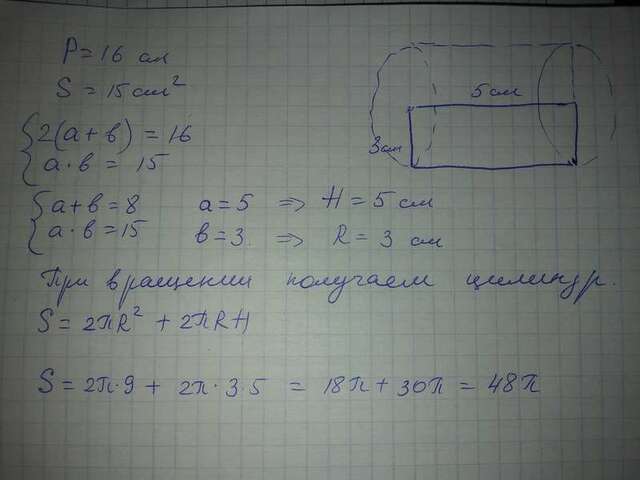 P = 16 см
S = 15 см²
5 см
3 см
{ 2(a + в) = 16
{ a · в = 15
{ a + в = 8 a = 5 ⇒ H = 5 см
{ a · в = 15 в = 3 ⇒ R = 3 см
При вращении получаем цилиндр.
S = 2πR² + 2πRH
S = 2π·9 + 2π·3·5 = 18π + 30π = 48π